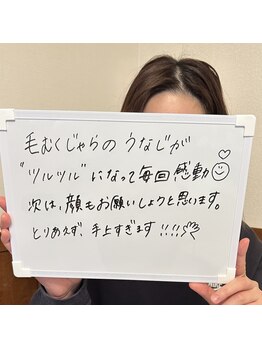 毛むくじゃらの うなじが
"ツルツル"になって毎回感動
次は、顔もお願いしようと思います。
とりあえず、手上すぎます!!!!